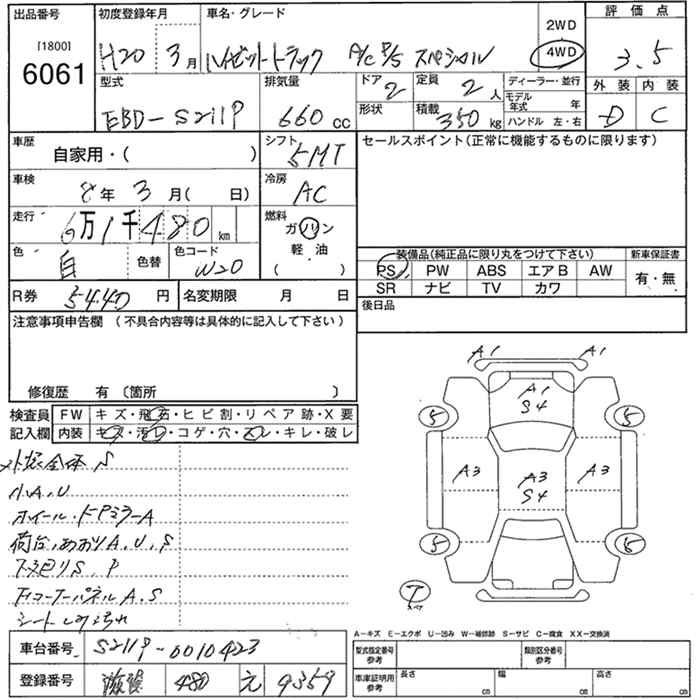 出品番号
[1800]
6061
初度登録年月
H20 3月
車名・グレード
ハイゼットトラック A/C P/S スペシャル
2WD
4WD
評価点
3.5
型式
EBD-S211P
排気量
660 cc
ドア
2
定員
2人
ディーラー・並行
モデル年式 年
ハンドル 左・右
形状
積載
350kg
外装 内装
D C
車歴
自家用・( )
シフト
5MT
セールスポイント(正常に機能するものに限ります)
車検
8年 3月( 日)
冷房
AC
走行
6万1千480km
燃料
ガソリン
軽・油
( )
色
白
色替
色コード
W20
装備品(純正品に限り丸をつけて下さい)
PS PW ABS エアB AW
SR ナビ TV カワ
新車保証書
有・無
R券 5440円
名変期限 月 日
後日品
注意事項申告欄(不具合内容等は具体的に記入して下さい)
修復歴 有〔箇所 〕
検査員記入欄
FW キズ・飛石・ヒビ割・リペア跡・X要
内装 キズ・汚レ・コゲ・穴・スレ・キレ・破レ
外装全体S
小A,U
ホイール・ドアミラーA
荷台,あおりA,U,S
下廻りS,P
コーナーパネルA,S
A1 A1
A1
S4
5 5
A3 A3 A3
S4
5 5
T
スペア
A-キズ E-エクボ U-凹み W-補修跡 S-サビ C-腐食 XX-交換済
車台番号 S211P-0010423
登録番号 滋賀 480 え 9359
型式指定番号
参考
類別区分番号
参考
車庫証明用
参考
長さ cm
幅 cm
高さ cm